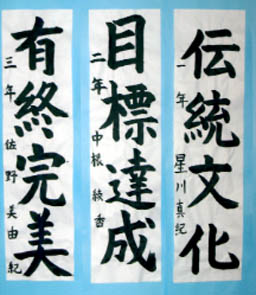 伝統文化
一年 星川真紀
目標達成
二年 中根綾香
有終完美
三年 佐野美由紀